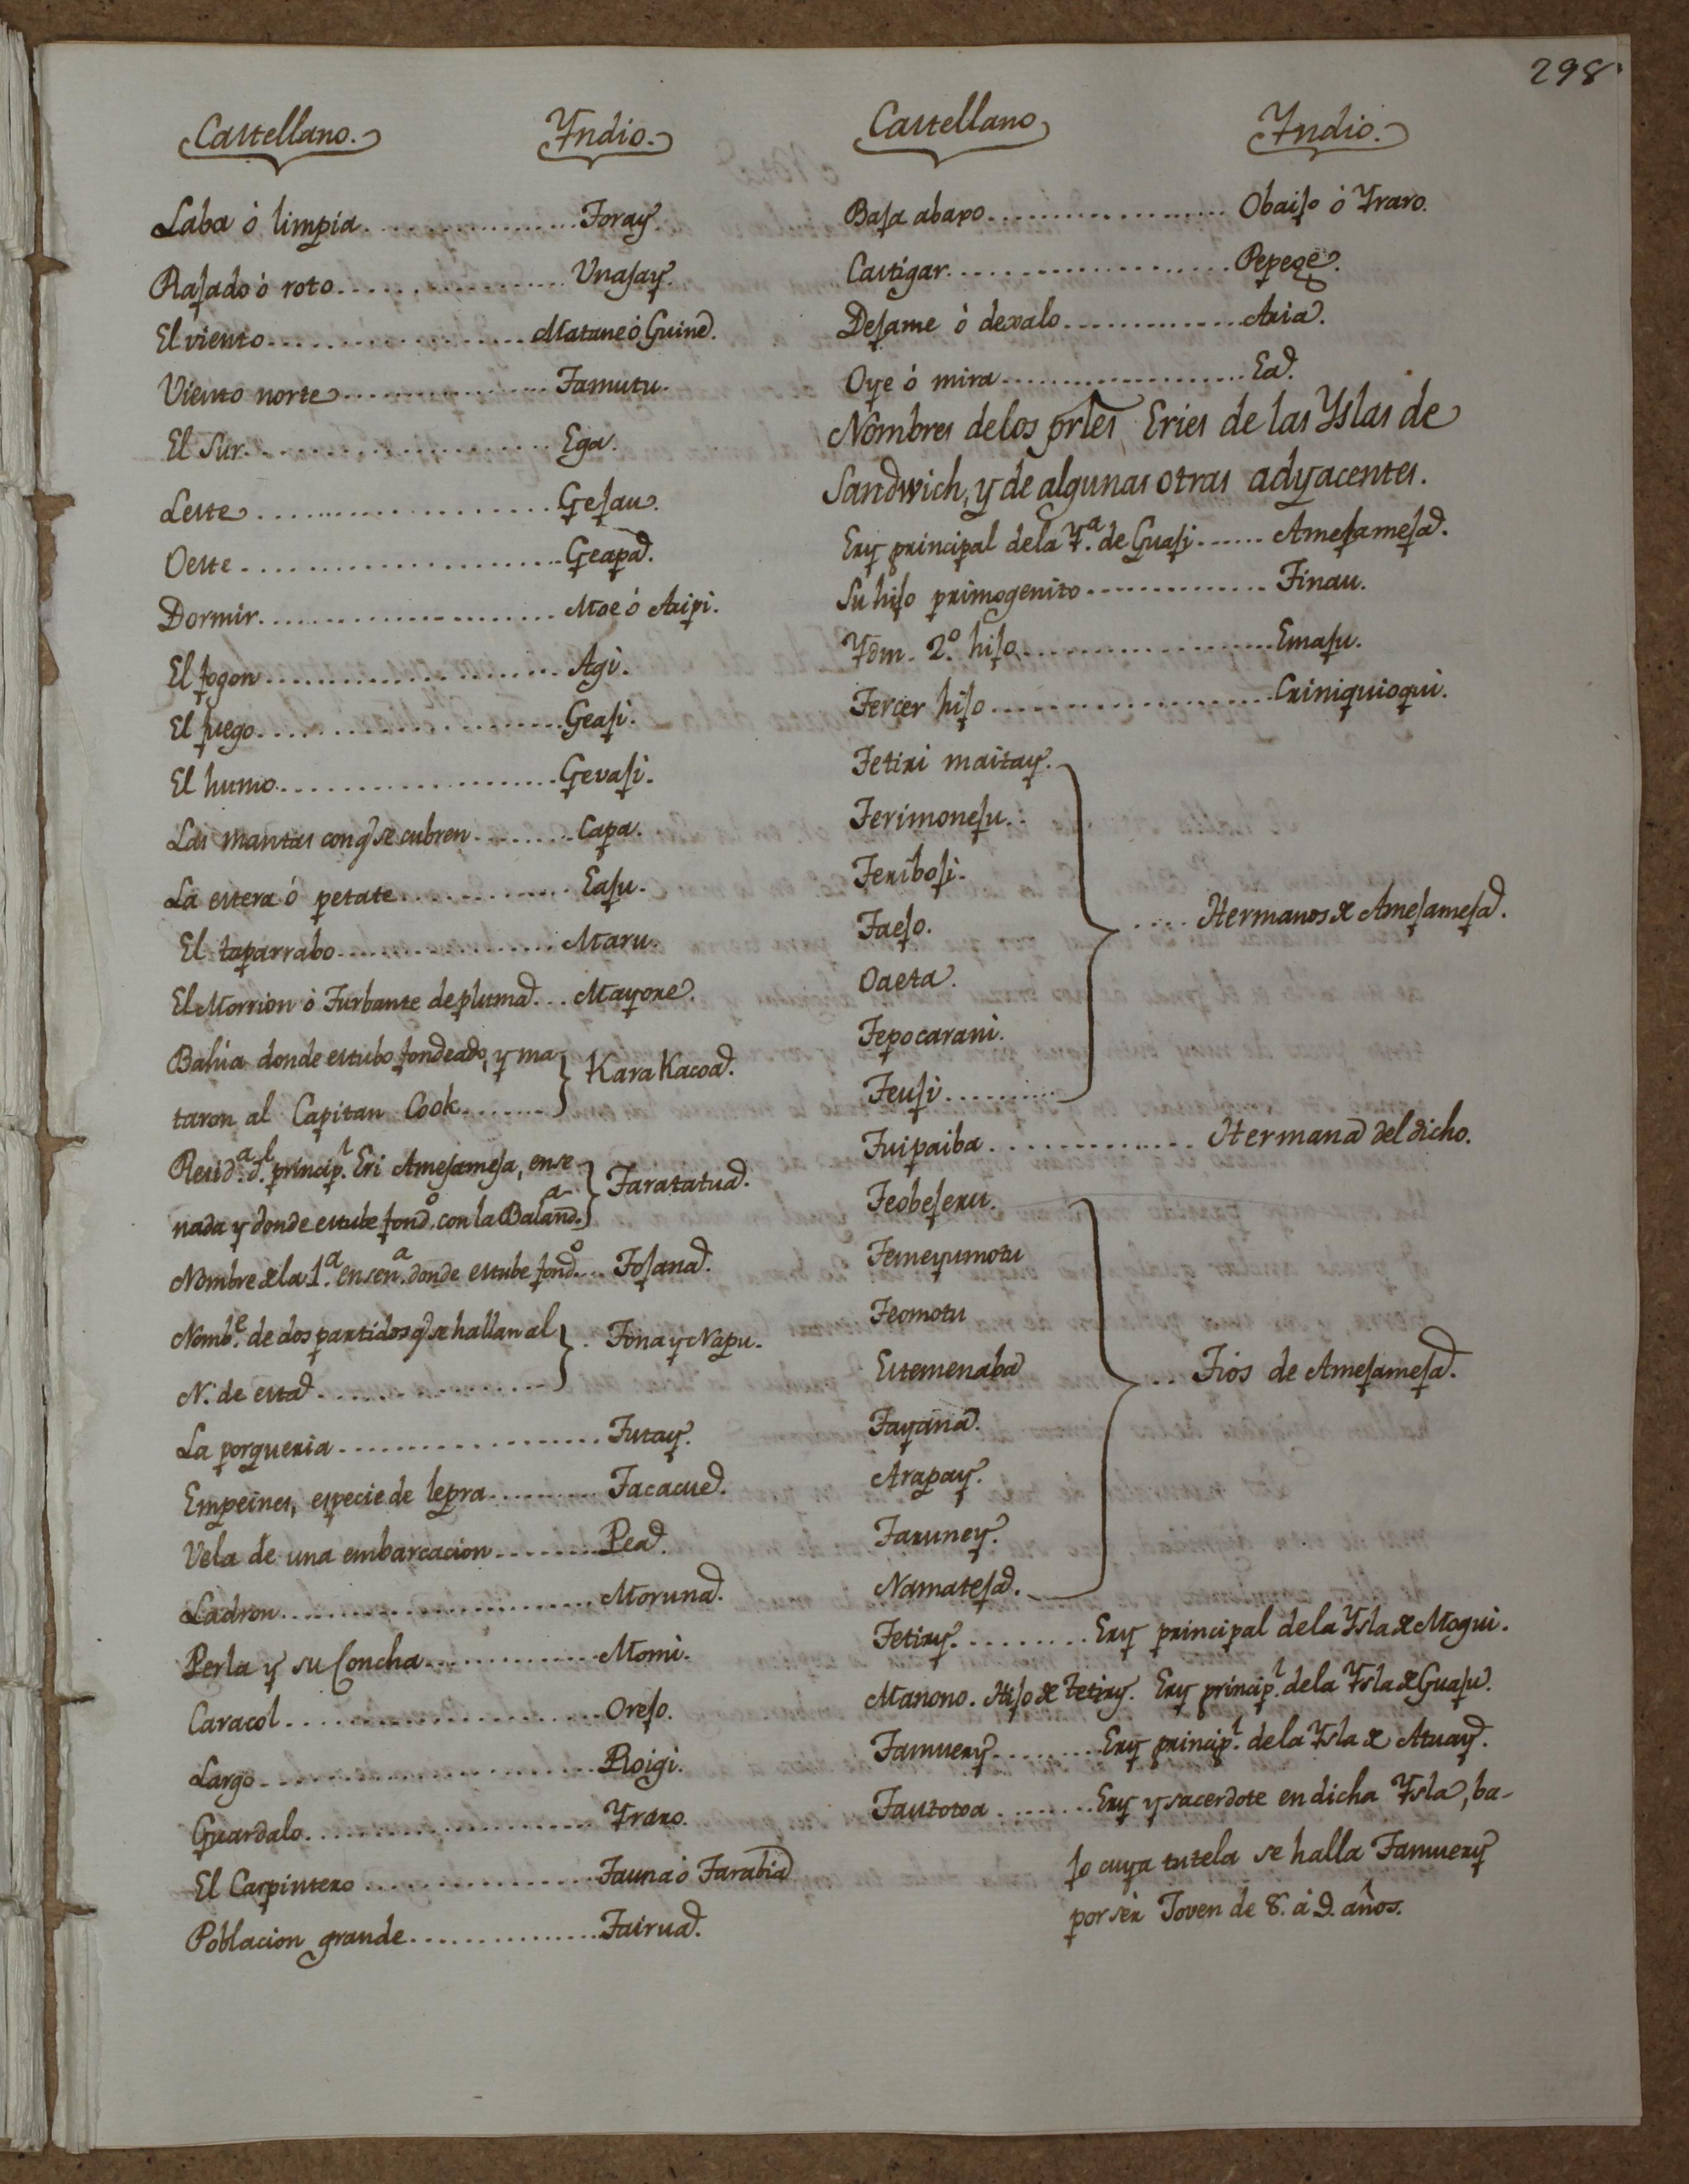 298
Castellano. Yndio.
Laba ó limpia Toray.
Rajado ó roto Unajay.
El viento Matane ó Guine.
Viento norte Tamutu.
El Sur Ega.
Leste Gejau.
Oeste Geapa.
Dormir Moe ó Aripi.
El fogon Agi.
El fuego Geaji.
El humo Gevaji.
Las mantas con q̃ se cubren Capa.
La estera ó petate Eaju.
El taparrabo Maru.
El Morrion ó Turbante de pluma Mayore.
Bahia donde estubo fondeado, y ma-
taron al Capitan Cook Kara Kacoa.
Resid.ª d.l princip.l Eri Amejameja, ense-
nada y donde estube fond.º con la Baland.ª Taratatua.
Nombre de la 1.ª ensen.ª donde estube fond.º Tojana.
Nomb.e de dos partidos q̃ se hallan al
N. de esta Tona y Napu.
La porqueria Tutay.
Empeines, especie de lepra Tacacue.
Vela de una embarcacion Pea.
Ladron Moruna.
Perla y su Concha Momi.
Caracol Orejo.
Largo Roigi.
Guardalo Yraro.
El Carpintero Tauna ó Tarabia
Poblacion grande Tairua.
Castellano Yndio.
Baja abaxo Obaijo ó Yraro.
Castigar Pepege.
Dejame ó dexalo Aria.
Oye ó mira Ea.
Nombres de los prles Eries de las Yslas de
Sandwich, y de algunas otras adyacentes.
Ery principal de la Y.ª de Guaji Amejameja.
Su hijo primogenito Tinau.
Ydm. 2.º hijo Emaju.
Tercer hijo Criniquioqui.
Tetiri maitay.
Terimoneju.
Teriboji.
Taejo.
Oaeta.
Tepocarani.
Teuji
Hermanos de Amejameja.
Tuipaiba Hermana del dicho.
Teobejeru.
Temeyumotu
Teomotu
Estemenaba
Tayana.
Arapay.
Taruney.
Namateja.
Tios de Amejameja.
Tetiry Ery principal de la Ysla de Mogui.
Manono. Hijo de Tetiry. Ery princip.l de la Ysla de Guaju.
Tamuery Ery princip.l de la Ysla de Atuay.
Tautotoa Ery y sacerdote en dicha Ysla, ba-
jo cuya tutela se halla Tamuery
por ser Joven de 8. á 9. años.